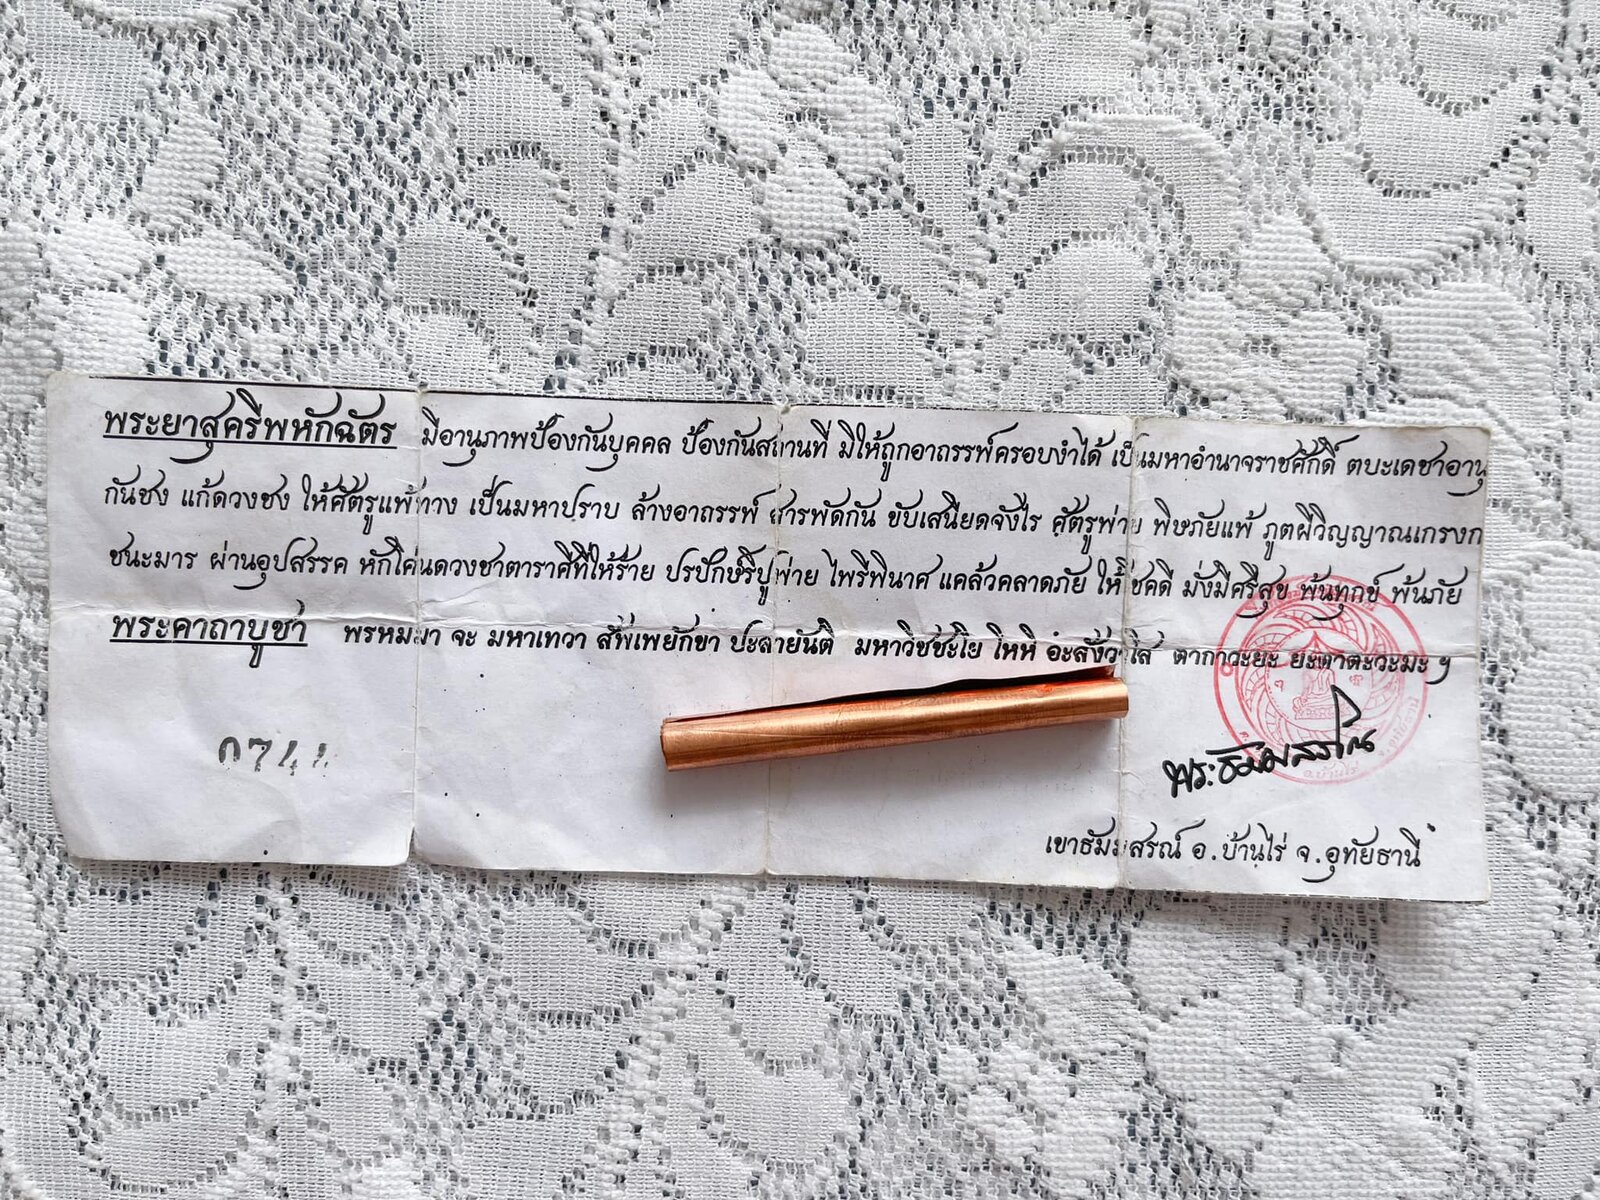 พระยาสุครีพหักฉัตร มีอานุภาพป้องกันบุคคล ป้องกันสถานที่ มิให้ถูกอาถรรพ์ครอบงำได้ เป็นมหาอำนาจราชศักดิ์ ตบะเดชาอานุ
กันชง แก้ดวงชง ให้ศัตรูแพ้ทาง เป็นมหาปราบ ล้างอาถรรพ์ สารพัดกัน ขับเสนียดจังไร ศัตรูพ่าย พิษภัยแพ้ ภูตผีวิญญาณเกรงก
ชนะมาร ผ่านอุปสรรค หักโค่นดวงชาตาราศีที่ให้ร้าย ปรปักษ์ริปูพ่าย ไพรีพินาศ แคล้วคลาดภัย ให้โชคดี มั่งมีศรีสุข พ้นทุกข์ พ้นภัย
พระคาถาบูชา พรหมมา จะ มหาเทวา สัพเพยักขา ปะลายันติ มหาวิชชะโย โหหิ อะสังวิ ตากาวะยะ ยะตาตะวะมะ ฯ
0744
พระธัมมสรโณ
เขาธัมมสรณ์ อ.บ้านไร่ จ.อุทัยธานี